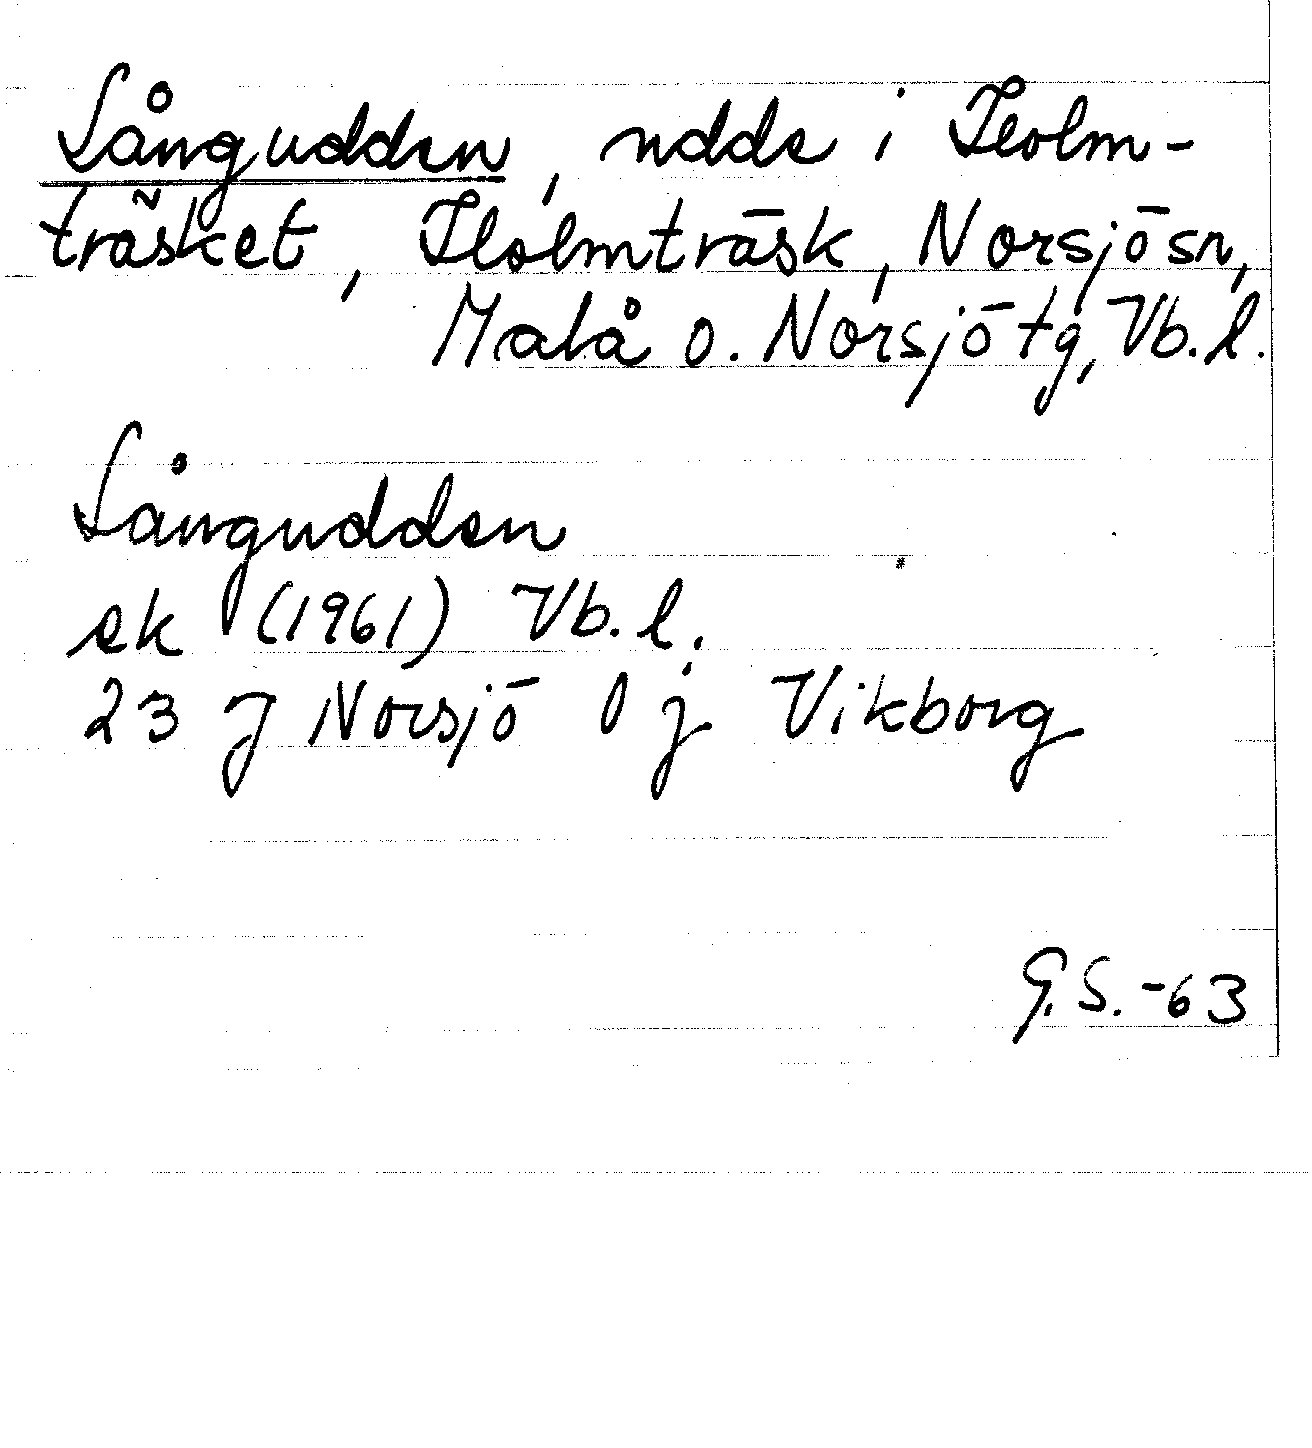 Långudden, udde i Holm-
träsket, Holmträsk, Norsjö sn,
Malå o. Norsjö tg, Vb. l.
Långudden
ek (1961) Vb. l.
23 J Norsjö 0 j Vikborg
G.S.-63